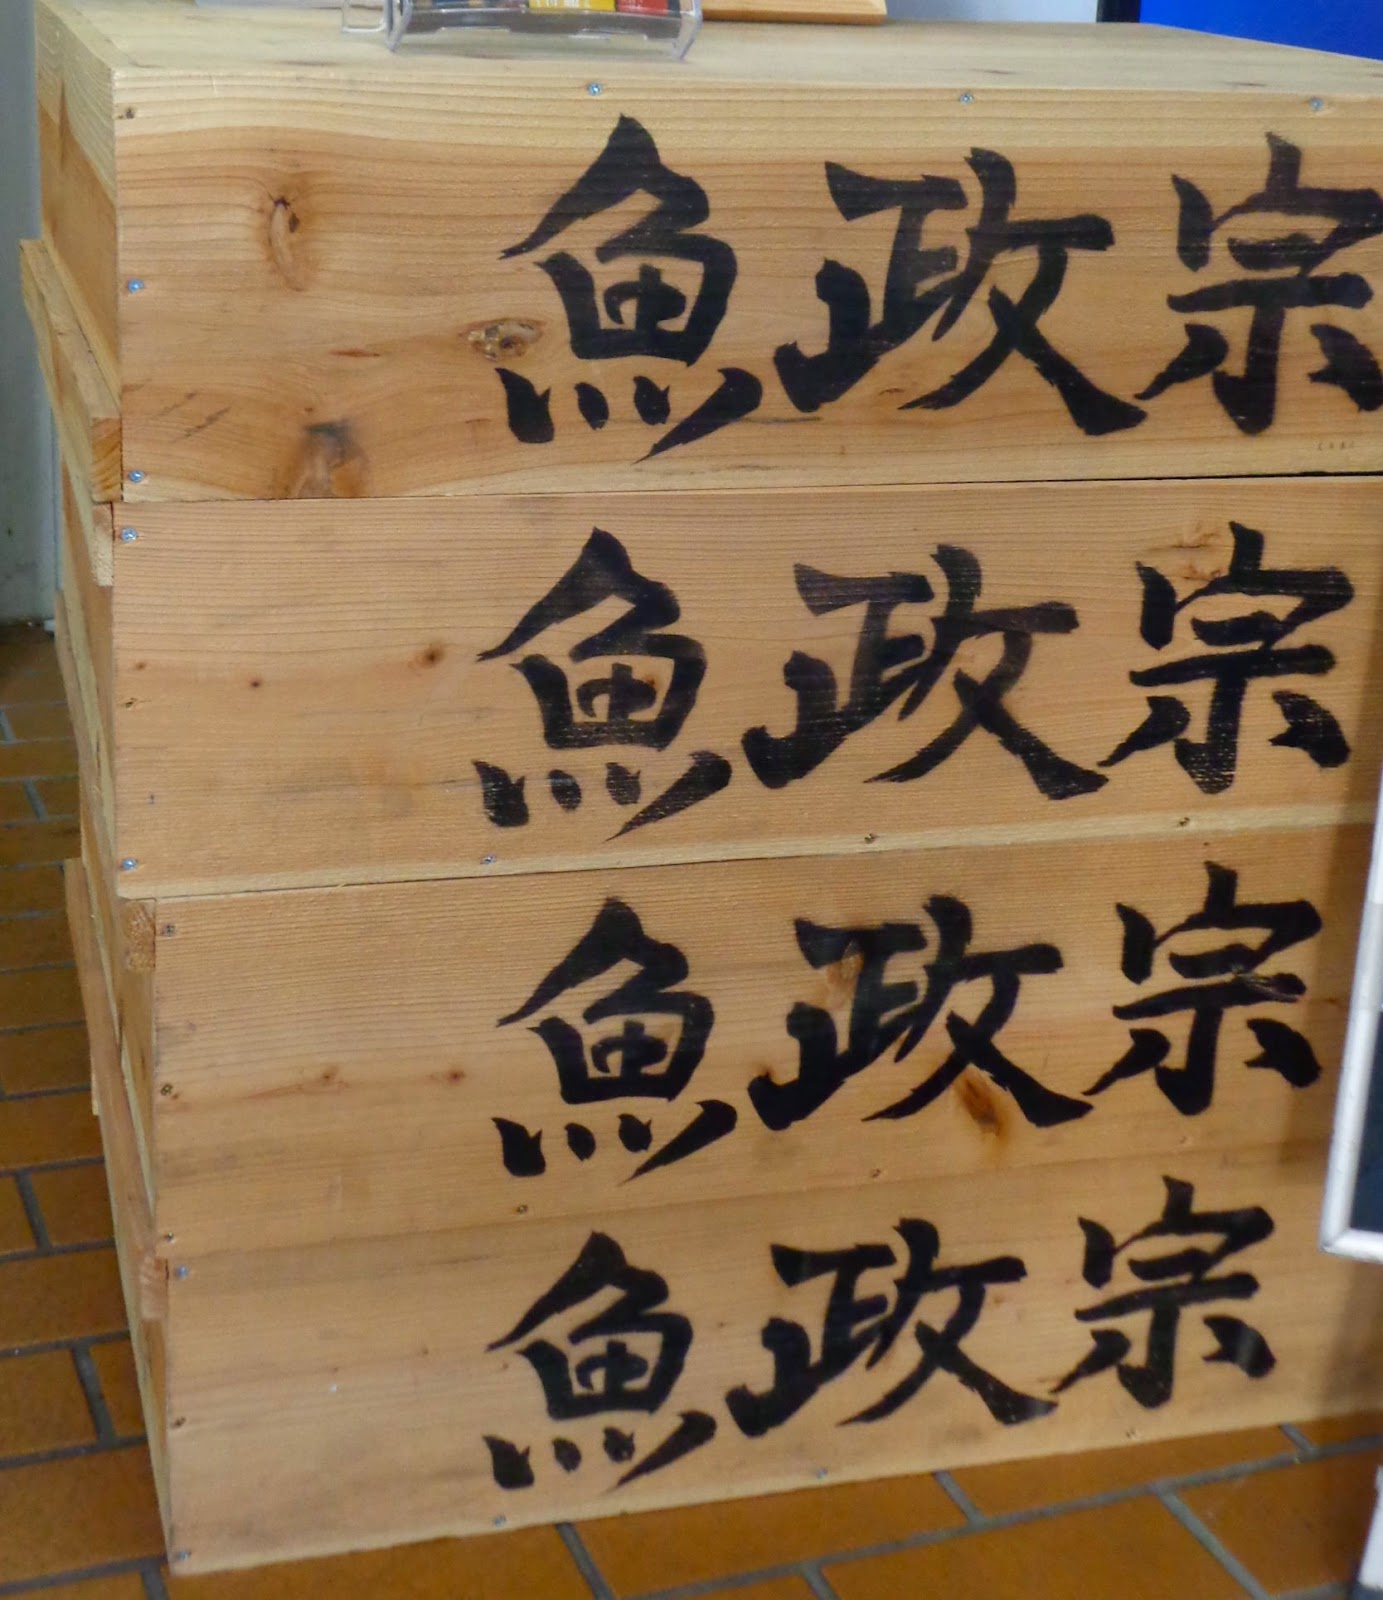 魚政宗
魚政宗
魚政宗
魚政宗